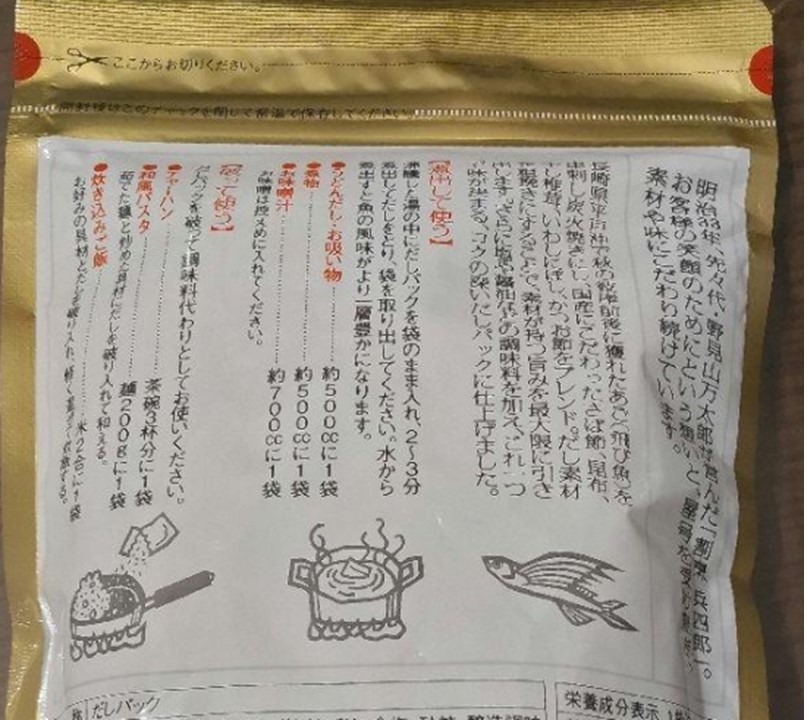 ここからお切りください。
開封後はこのチャックを閉じて常温で保存してください。
明治33年、先々代、野見山万太郎が営んだ「割烹 兵四郎」。
お客様の笑顔のためにという想いと、屋号を受け継ぎ、
素材や味にこだわり続けています。
長崎県平戸沖で秋の彼岸前後に獲れたあご(飛び魚)を
串刺し炭火焼きにし、国産にこだわったさば節、昆布、
干し椎茸、いわし煮干し、かつお節をブレンド。だし素材
を粗挽きにすることで、素材が持つ旨みを最大限に引き
出します。さらに塩や醤油などの調味料を加え、これ一つ
で味が決まる、コクの深いだしパックに仕上げました。
【煮出して使う】
沸騰した湯の中にだしパックを袋のまま入れ、2〜3分
煮出してだしをとり、袋を取り出してください。水から
煮出すと魚の風味がより一層豊かになります。
●うどんだし・お吸い物…………約500ccに1袋
●煮物…………約500ccに1袋
●お味噌汁…………約700ccに1袋
お味噌は控えめに入れてください。
【破って使う】
だしパックを破って調味料代わりとしてお使いください。
●チャーハン…………茶碗3杯分に1袋
●和風パスタ…………麺200gに1袋
茹でた麺と炒めた具材にだしを破り入れて和える。
●炊き込みご飯…………米2合に1袋
お好みの具材とだしを破り入れ、軽く混ぜて炊飯する。
だしパック
栄養成分表示